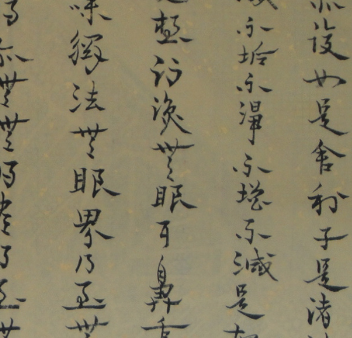 亦復如是舍利子是諸
滅不垢不淨不增不減是故
想行識無眼耳鼻舌
味觸法無眼界乃至無
明亦無無明盡乃至無